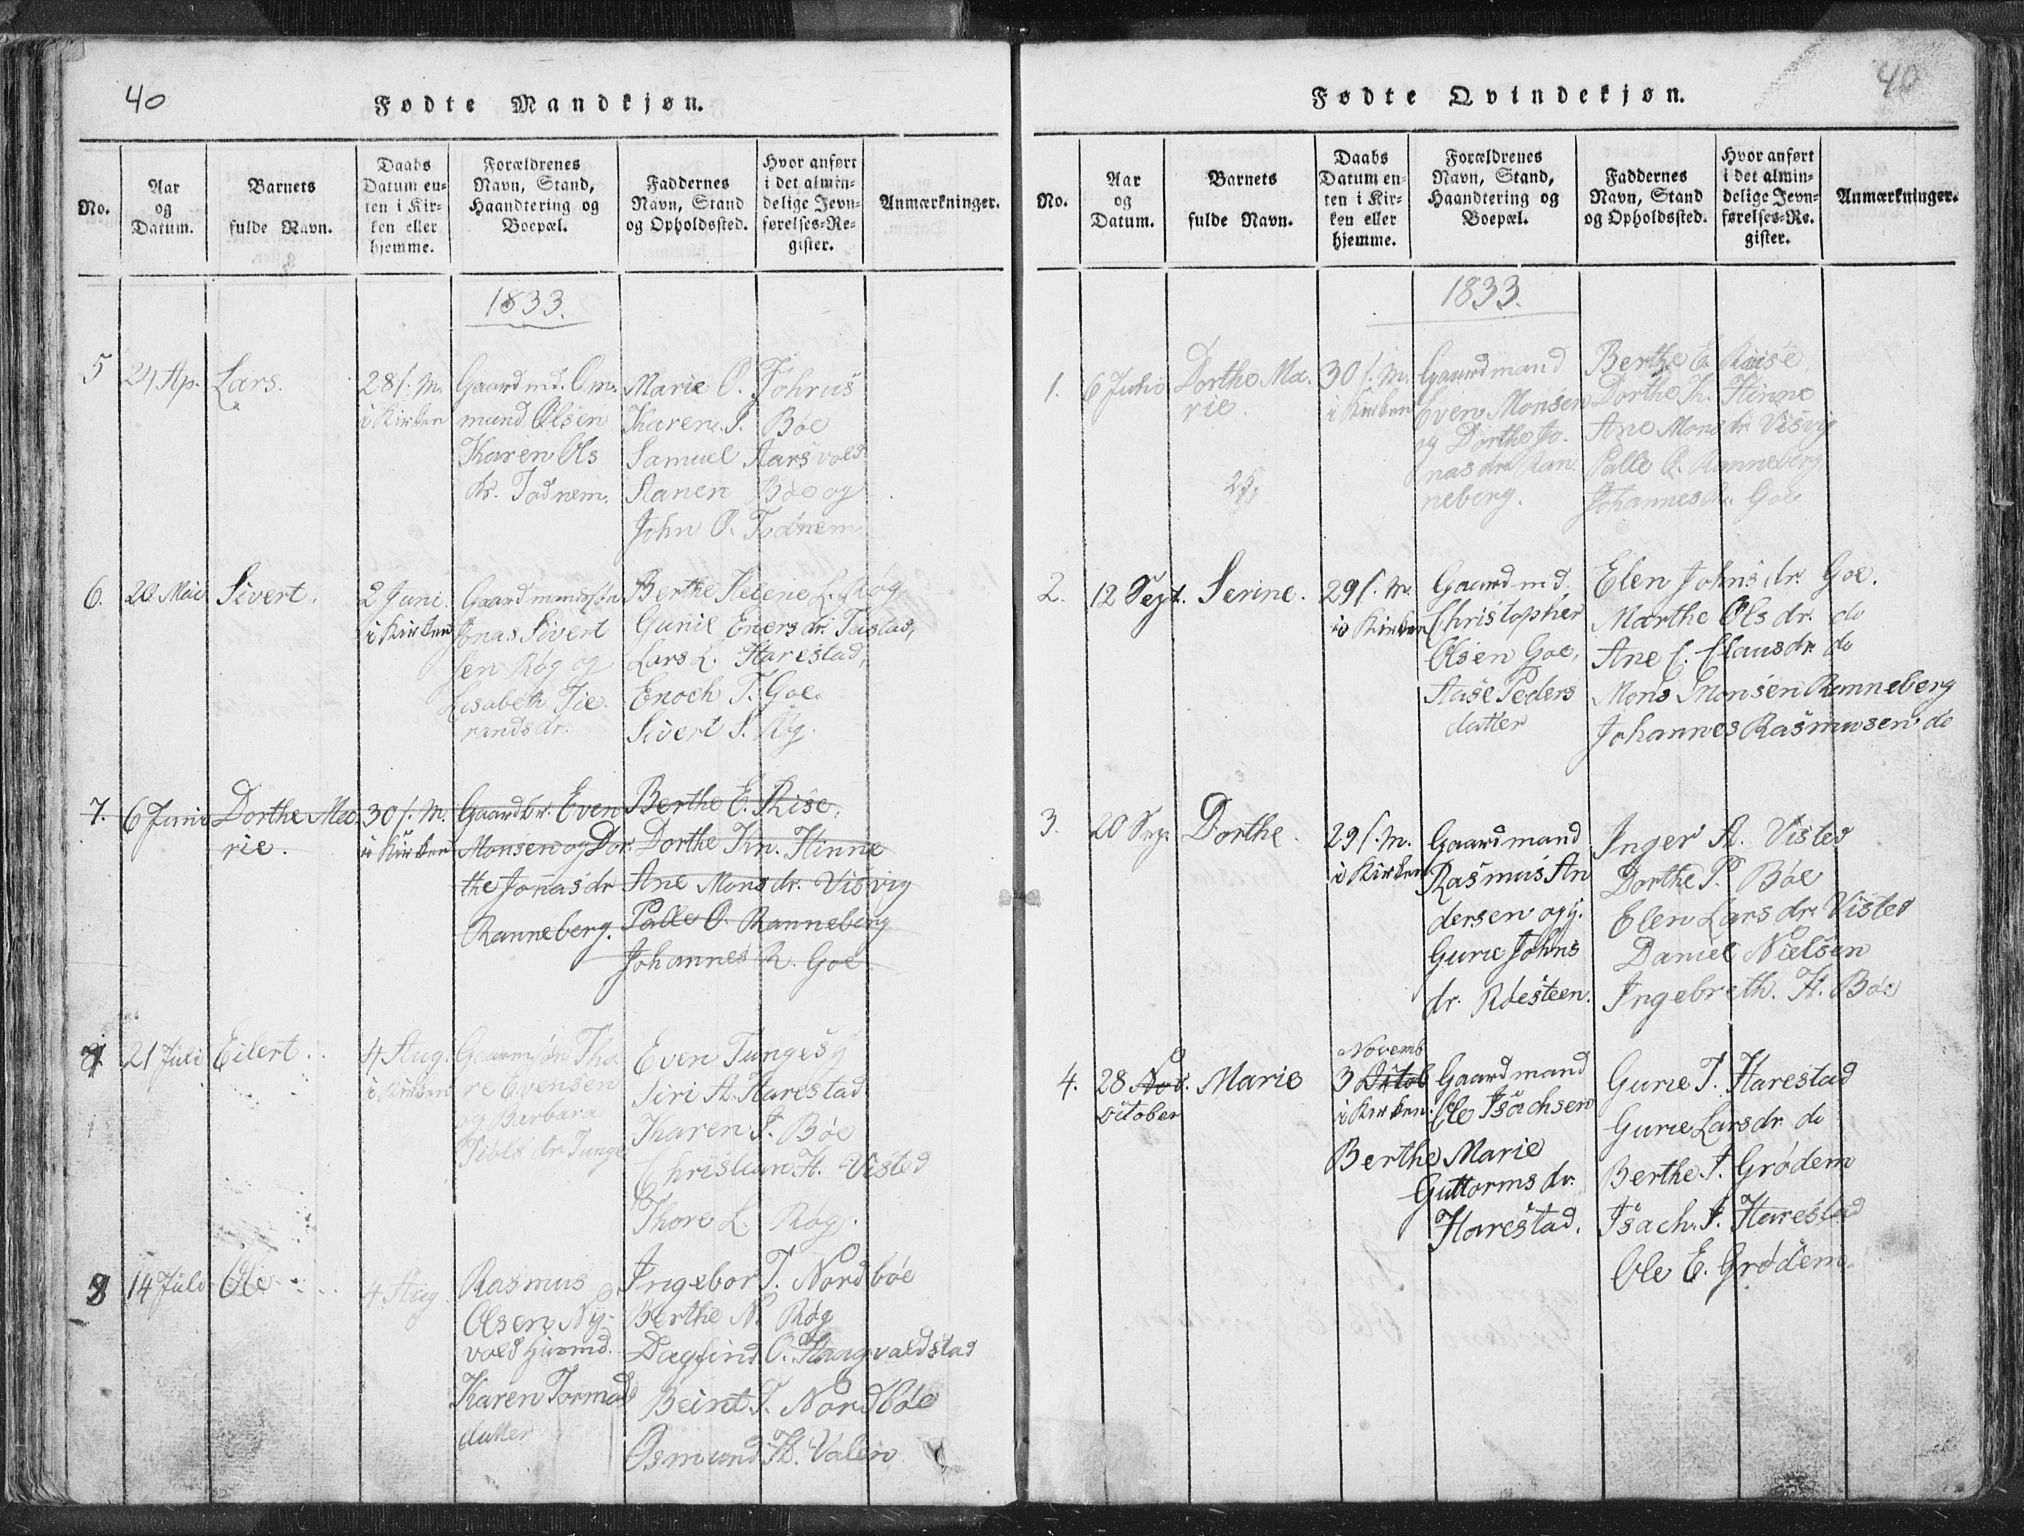 40
Fødte Mandkjøn.
No.
Aar
og
Datum.
Barnets
fulde Navn.
Daabs
Datum en-
ten i Kir-
ken eller
hjemme.
Forældrenes
Navn, Stand,
Haandtering og
Boepæl.
Faddernes
Navn, Stand
og Opholdssted.
Hvor anført
i det almin-
delige Jevn-
førelses-Re-
gister.
Anmærkninger.
1833.
5
24 Ap.
Lars.
28 s. M.
i Kirken
Gaardmd. Om-
mund Olsen
Karen Ols
dr. Todnem.
Marie O. Fohrus
Karen J. Bøe
Samuel Aarsvold
Aanen Bøe og
John O. Todnem
6.
20 Mai
Sivert.
2 Juni.
i Kirken
Jonas Sivert
sen Røg og
Lisabeth Tie
randsdr.
Berthe Helene L. Røg
Gunil Eners dr. Tastad,
Lars L. Harestad,
Enoch T. Goe
Sivert S. Røg.
7.
6 Juni
Dorthe Ma
rie.
30 s. M.
i Kirken
Gaardbr. Even
Monsen og Dor
the Jonas dr
Ranneberg.
Berthe E. Rise,
Dorthe Kn. Hinne
Ane Mons dr. Visvig
Palle O. Ranneberg
Johannes R. Goe
21 Juli
Eilert.
4 Aug.
i Kirken
Tho
re Evensen
og Barbara
dr Tunge
Even Tunge
Siri A. Harestad
Karen J. Bøe
Christian H. Visted
Thore L. Røg.
14 Juli
Ole
4 Aug.
Rasmus
Olsen Ny-
vold Huusmd.
Karen Tormods
datter
Ingebor T. Nordbøe
Berthe N. Røg
Dagfind O. Haugvaldstad
Beint T. Nordbøe
Osmund H. Valen
Fødte Qvindekjøn.
40
No.
Aar
og
Datum.
Barnets
fulde Navn.
Daabs
Datum en-
ten i Kir-
ken eller
hjemme.
Forældrenes
Navn, Stand,
Haandtering og
Boepæl.
Faddernes
Navn, Stand
og Opholdssted.
Hvor anført
i det almin-
delige Jevn-
førelses-Re-
gister.
Anmærkninger.
1833.
1.
6 Juni
Dorthe Ma-
rie.
30 s. M.
i Kirken
Gaardmand
Even Monsen
og Dorthe Jo-
nas dr. Ran
neberg.
Berthe E. Riise,
Dorthe K. Hinne
Ane Mons dr. Visvig
Palle O. Ranneberg,
Johannes R. Goe
2.
12 Sept.
Serine.
29 s. M.
i Kirken
Gaardmd.
Christopher
Olsen Goe,
Aase Peders
datter
Elen Johns dr. Goe.
Marthe Ols dr. do
Ane C. Clausdr. do
Mons Monsen Ranneberg
Johannes Rasmusen do
3.
20 Sep.
Dorthe.
29 s. M.
i Kirken
Gaardmand
Rasmus An
dersen og
Gurie Johns
dr. Røesteen.
Inger A. Visted
Dorthe P. Bøe
Elen Lars dr. Visted
Daniel Nielsen
Ingebreth. H. Bøe
4.
28 Nov.
October
Marie
Novemb
3 Octob
i Kirken.
Gaardmand
Ole Isachsen
Berthe Marie
Guttorms dr.
Harestad.
Gurie T. Harestad
Gurie Larsdr. do
Berthe J. Grødem
Isach. J. Harestad
Ole E. Grødem